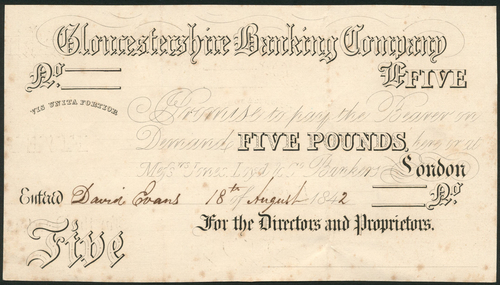 Gloucestershire Banking Company
No. £FIVE
VIS UNITA FORTIOR
Promise to pay the Bearer on
Demand FIVE POUNDS, here or at
Messrs Jones Loyd & Co. Bankers London
Entered David Evans 18th of August 1842 No.
For the Directors and Proprietors.
Five